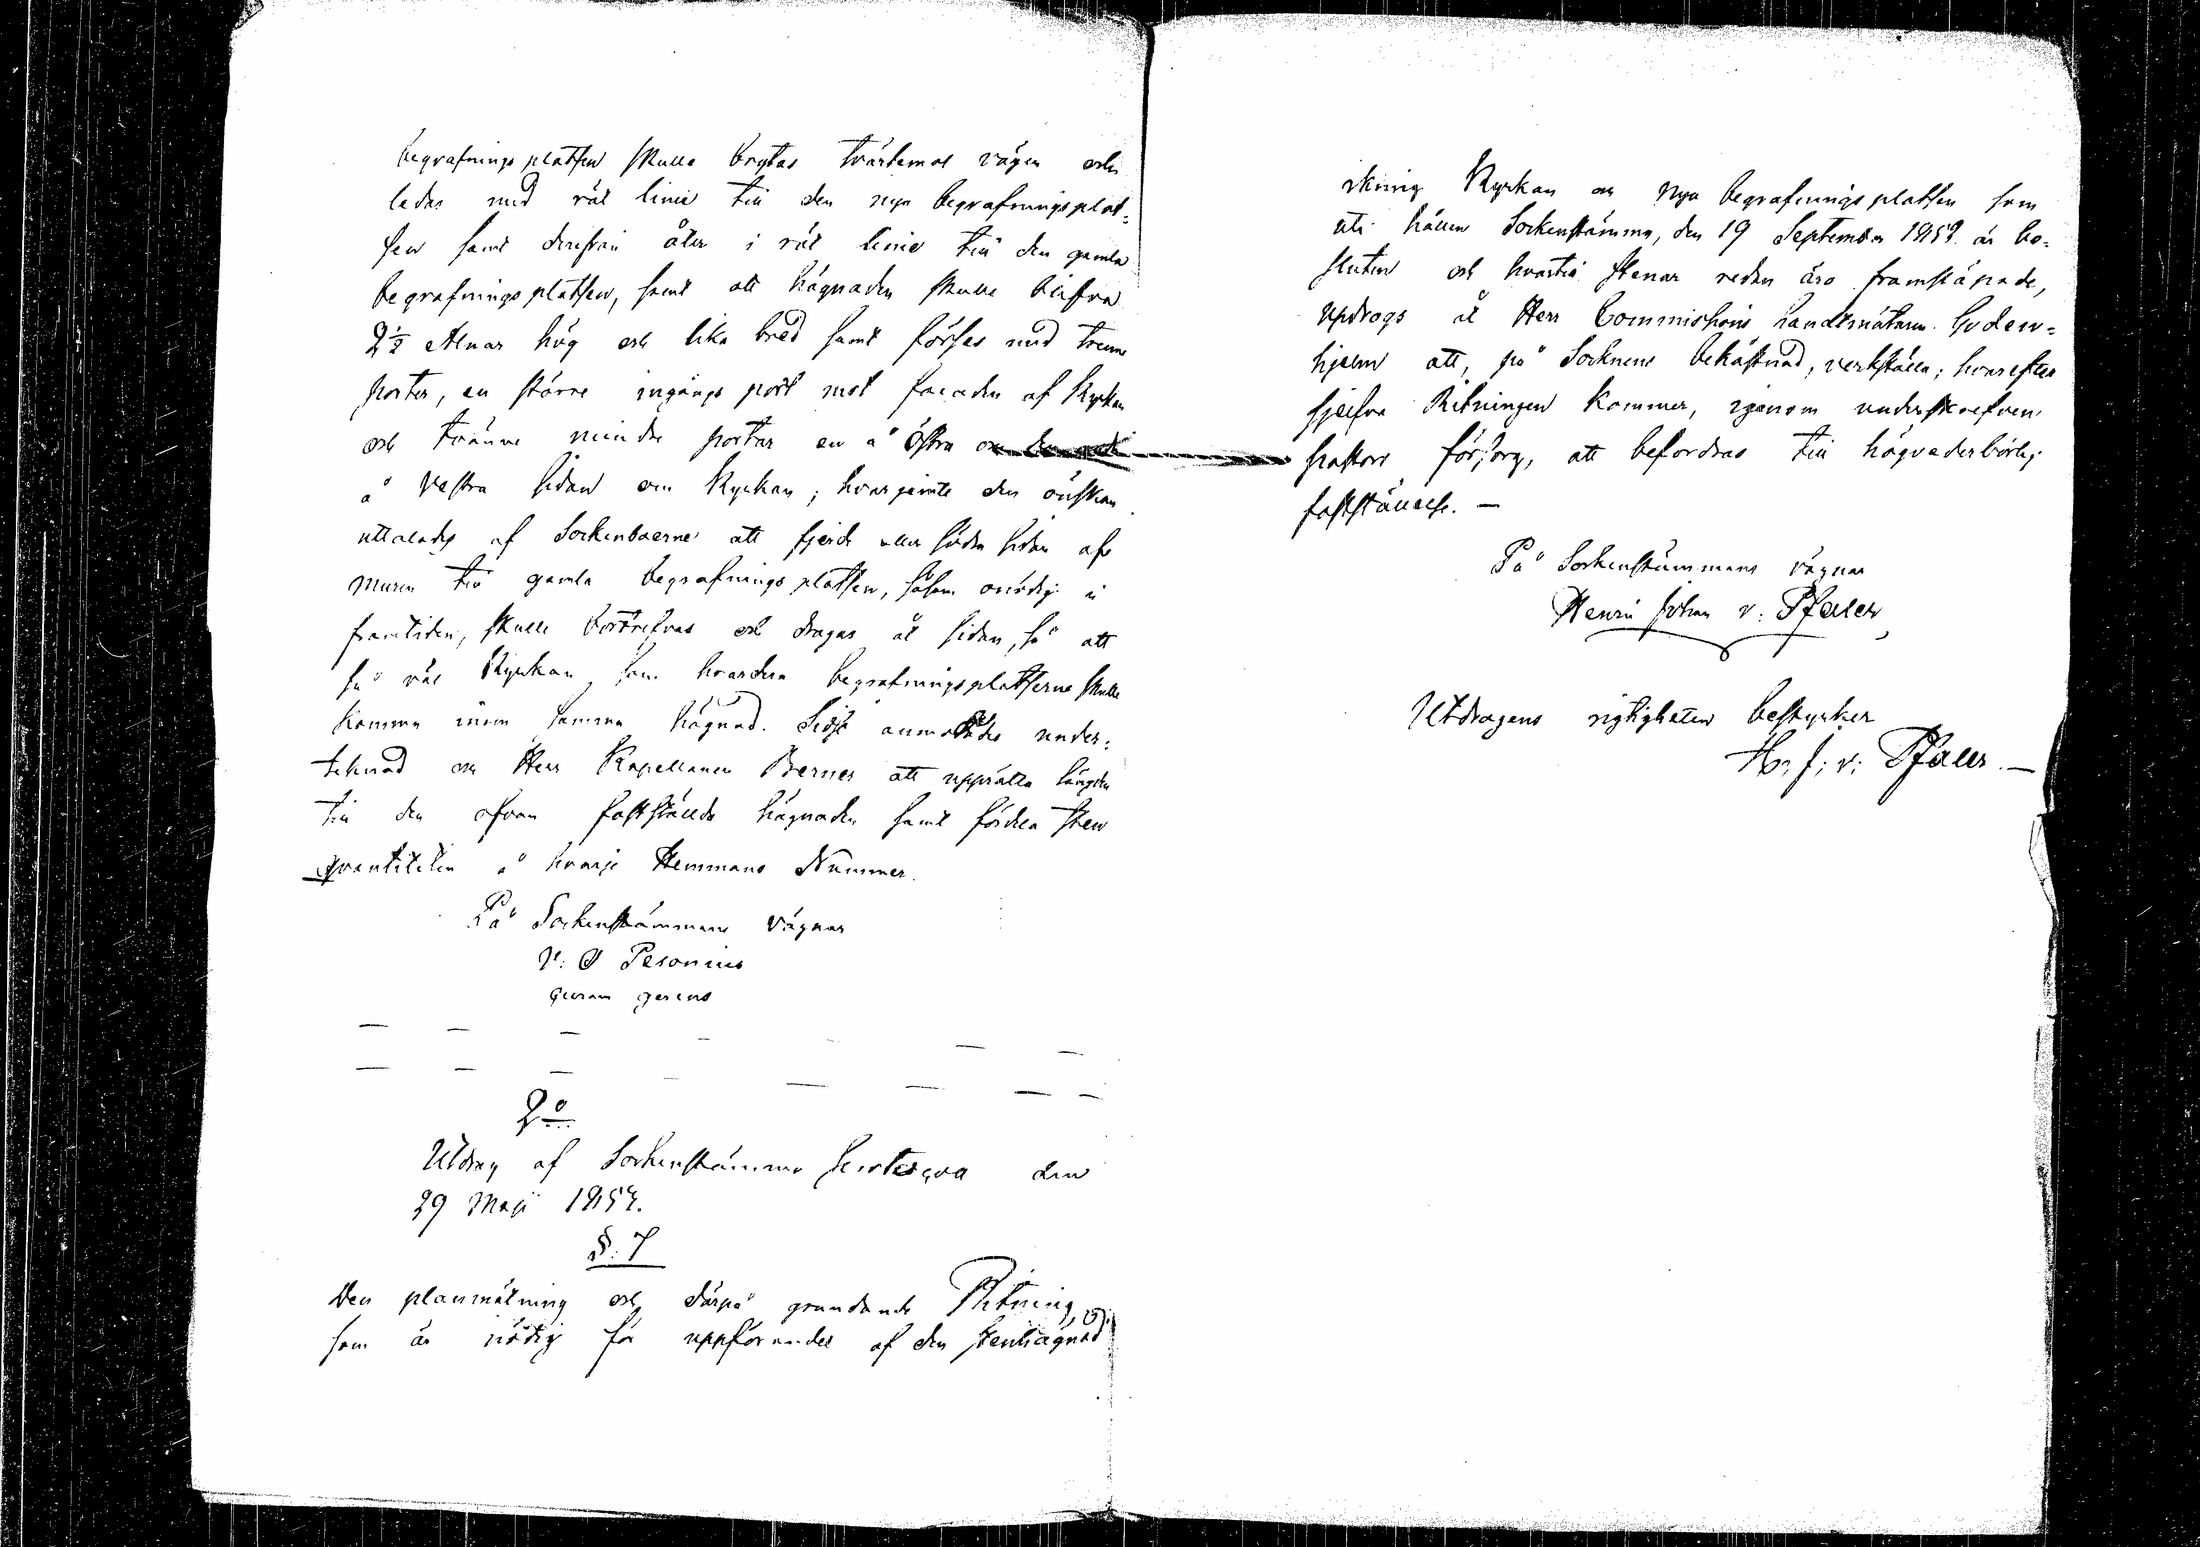 begrafningsplatsen skulle brytas tvärtemot vägen och
ledas med rät linie till den nya begrafningsplat=
sen samt derifrån åter i rät linie till den gamla
begrafningsplatsen, samt att hägnaden skulle blifva
2½ Alnar hög och lika bred samt förses med trenne
portar, en större ingångs port mot facaden af Kyrkan
och tvänne mindre portar en å östra och
å vestra sidan om Kyrkan; hvarjemte den önskan
uttalades af Sockenboerne att fjerde eller södra sidan af
muren till gamla begrafningsplatsen, såsom onödig i
framtiden, skulle bortrifvas och dragas åt sidan, så att
så väl Kyrkan som hvardera begrafningsplatserne skulle
komma inom samma hägnad. Sidst anmodades under=
teknad och Herr Kapellanen Berner att upprätta längden
till den ofvan fastställde hägnaden samt fördela sten
qvantiteten å hvarje Hemmans Nummer.
På Sockenstämmans vägnar
V: O Pesonius
curam gerens
2o
Utdrag af Sockenstämmo den
29 Maji 1854.
§. 7
Den planmätning och därpå grundande Ritning,
som är nödig för uppförandet af den stenhägnad
Kyrkan och Nya begrafningsplatsen som
uti hållen Sockenstämma, den 19 September 1852 är be=
sluten och hvartill stenar redan äro framsläpade,
updrogs åt Herr Commissions Landtmätaren Goden=
hjelm att, på Socknens bekåstnad, verkställa; hvarefter
sjelfva Ritningen kommer, igenom underskrefven
Pastors försorg, att befordras till högvederbörlig
fastställelse. —
På Sockenstämmans vägnar
Henric Johan v: Pfaler
Utdragens rigtigheten bestyrker
H: J: v: Pfaler. —